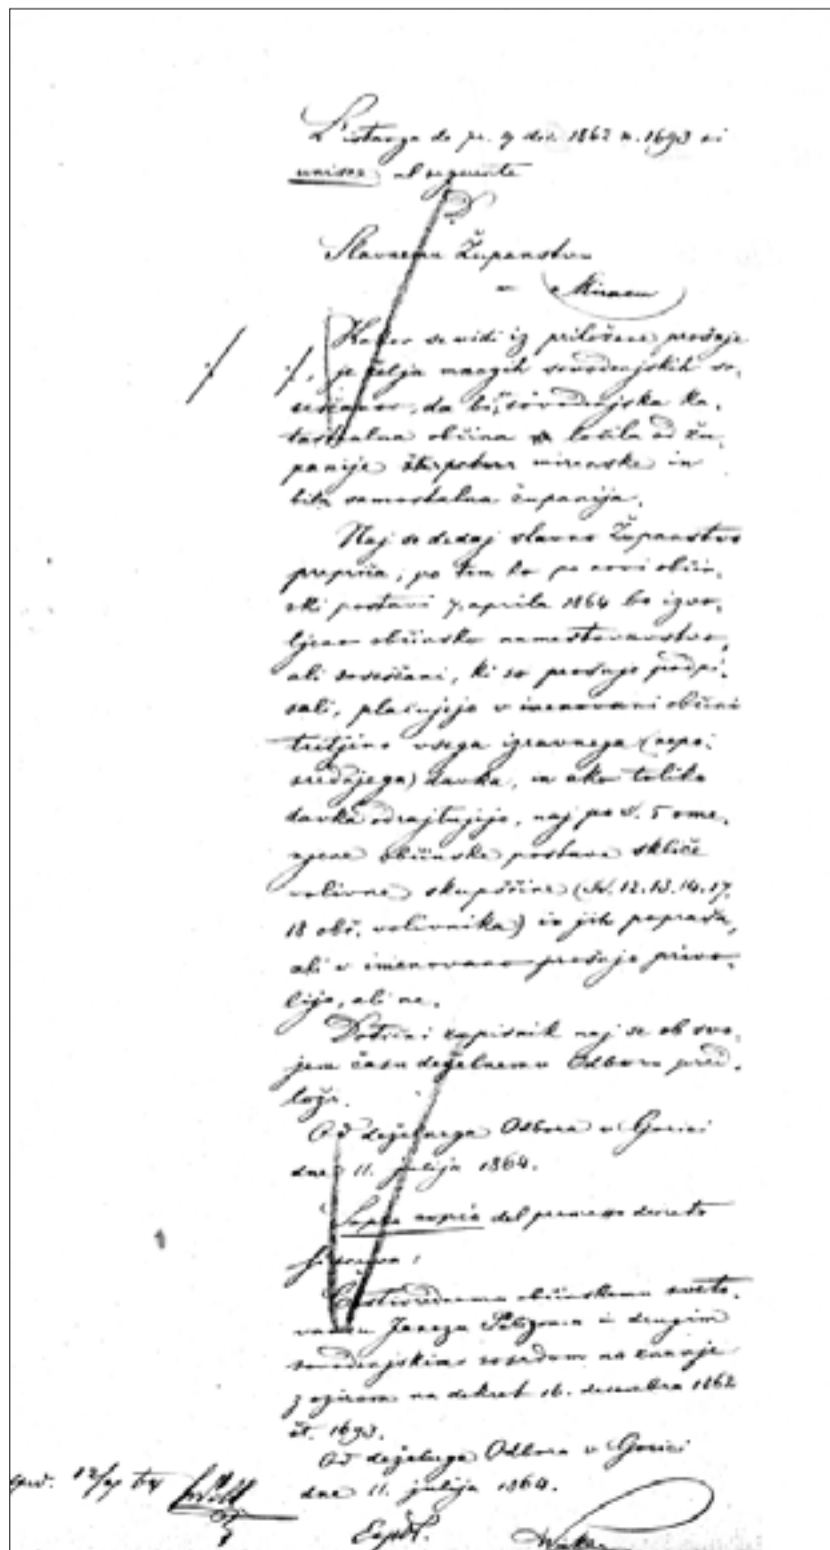 L'istanza de pr. 9 dic. 1862 n. 1693 si
unisce al seguente
D.
Slavnemu Županstvu
v Mirnem
Kakor se vidi iz priložene prošnje
je želja mnogih sovodenjskih so-
seščanov, da bi sovodenjska ka-
tastralna občina ločila od žu-
panije mirenske in
bila samostalna županija.
Naj se dedaj slavno Županstvo
prepriča, po tem ko po novi občin-
ski postavi 7. aprila 1864 bo izvo-
ljeno občinsko namestovavstvo,
ali soseščani, ki so prošnjo podpi-
sali, plačujejo v imenovani občini
tretjino vsega izravnega (nepo-
srednjega) davka, in ako toliko
davka odrajtujejo, naj po §. 5 ome-
njene občinske postave skliče
volivne skupščine (§. 12. 13. 14. 17.
18 obč. volivnika) in jih popraša,
ali v imenovano prošnjo privo-
lijo, ali ne.
Dotični zapisnik naj se ob svo-
jem času deželnemu Odboru pred-
loži.
Od deželnega Odbora v Gorici
dne 11. julija 1864.
Sopra copia del presente decreto
si scriva:
Častivrednemu občinskemu sveto-
vavcu Janezu in drugim
sovodenjskim sosedom na znanje
z ozirom na dekret 16. decembra 1862
št. 1693.
Od deželnega Odbora v Gorici
dne 11. julija 1864.
12/7 64